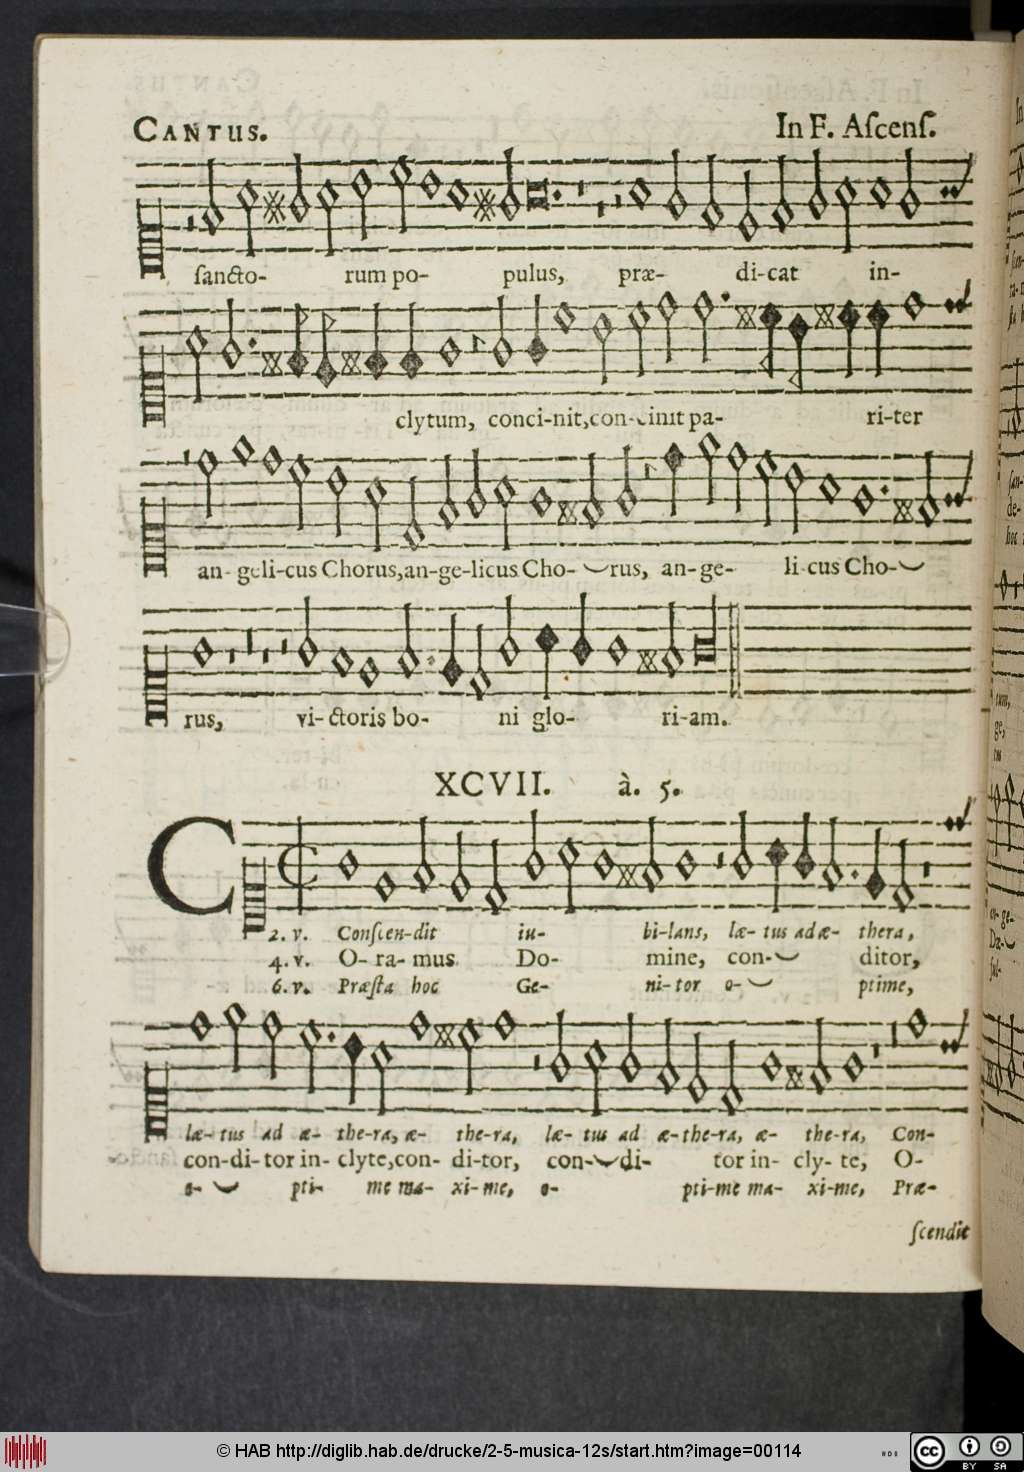 CANTUS. In F. Aſcenſ.
ſancto- rum po- pulus, præ- di-cat in-
clytum, conci-nit,con-cinit pa- ri-ter
an- geli-cus Chorus,an-ge-licus Cho- rus, an-ge- li-cus Cho-
rus, vi-ctoris bo- ni glo- ri-am.
XCVII. à. 5.
C
2. v. Conſcen-dit iu- bi-lans, læ- tus ad æ- thera,
4. v. O- ra- mus Do- mine, con- ditor,
6. v. Præſta hoc Ge- ni- tor o- ptime,
læ- tus ad æ- the-ra, æ- the-ra, læ- tus ad æ-the-ra, æ- the-ra, Con-
con-di-tor in- clyte,con- di-tor, con- di- tor in- cly- te, O-
o- pti- me ma- xi-me, o- pti-me ma- xi-me, Præ-
ſcendit
© HAB http://diglib.hab.de/drucke/2-5-musica-12s/start.htm?image=00114
cc BY SA